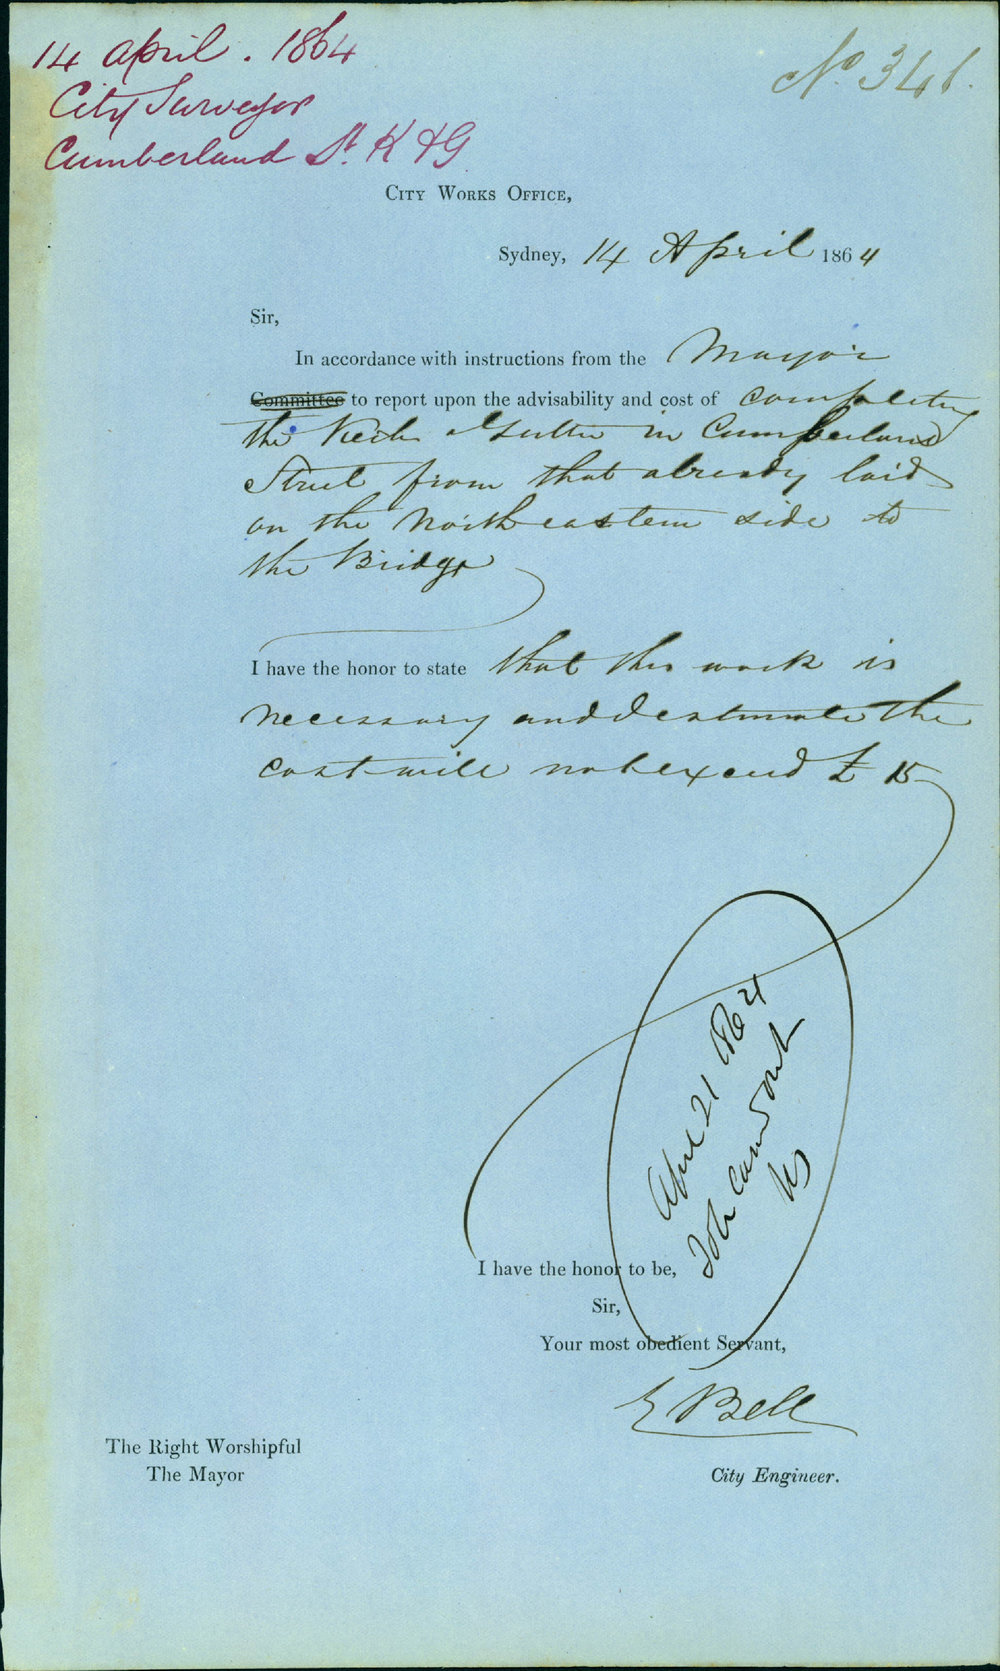 14 April . 1864
City Surveyor
Cumberland St. K & G
No 341.
CITY WORKS OFFICE,
Sydney, 14 April 1864
Sir,
In accordance with instructions from the Mayor
Committee to report upon the advisability and cost of completing
the Kerb & Gutter in Cumberland
Street from that already laid
on the North eastern side to
the Bridge
I have the honor to state that this work is
necessary and I estimate the
cost will not exceed £ 15
April 21 1864
I have the honor to be,
Sir,
Your most obedient Servant,
E Bell
The Right Worshipful
The Mayor
City Engineer.